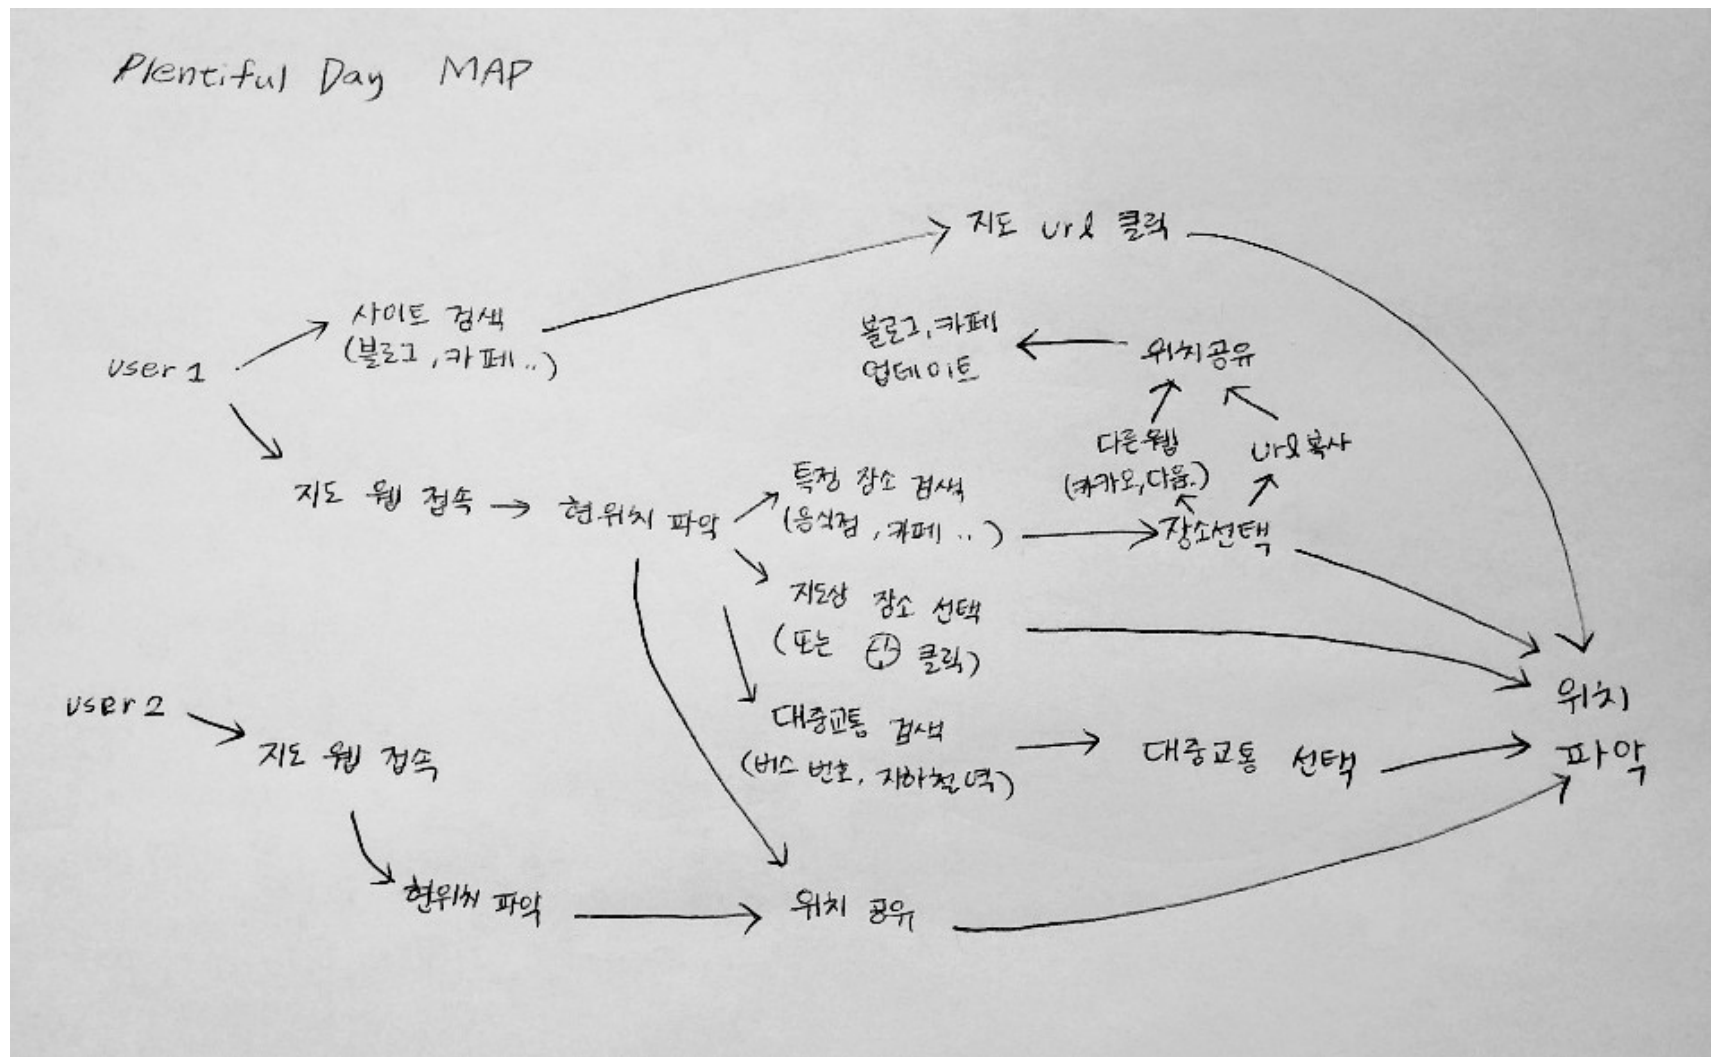 Plentiful Day MAP
지도 url 클릭
사이트 검색
(블로그, 카페..)
user 1
블로그, 카페
업데이트
위치공유
다른웹
(카카오, 다음.)
url복사
지도 웹 접속
현위치 파악
특정 장소 검색
(음식점, 카페 ..)
장소선택
지도상 장소 선택
(또는 클릭)
대중교통 검색
(버스 번호, 지하철 역)
대중교통 선택
위치
파악
user 2
지도 웹 접속
현위치 파악
위치 공유